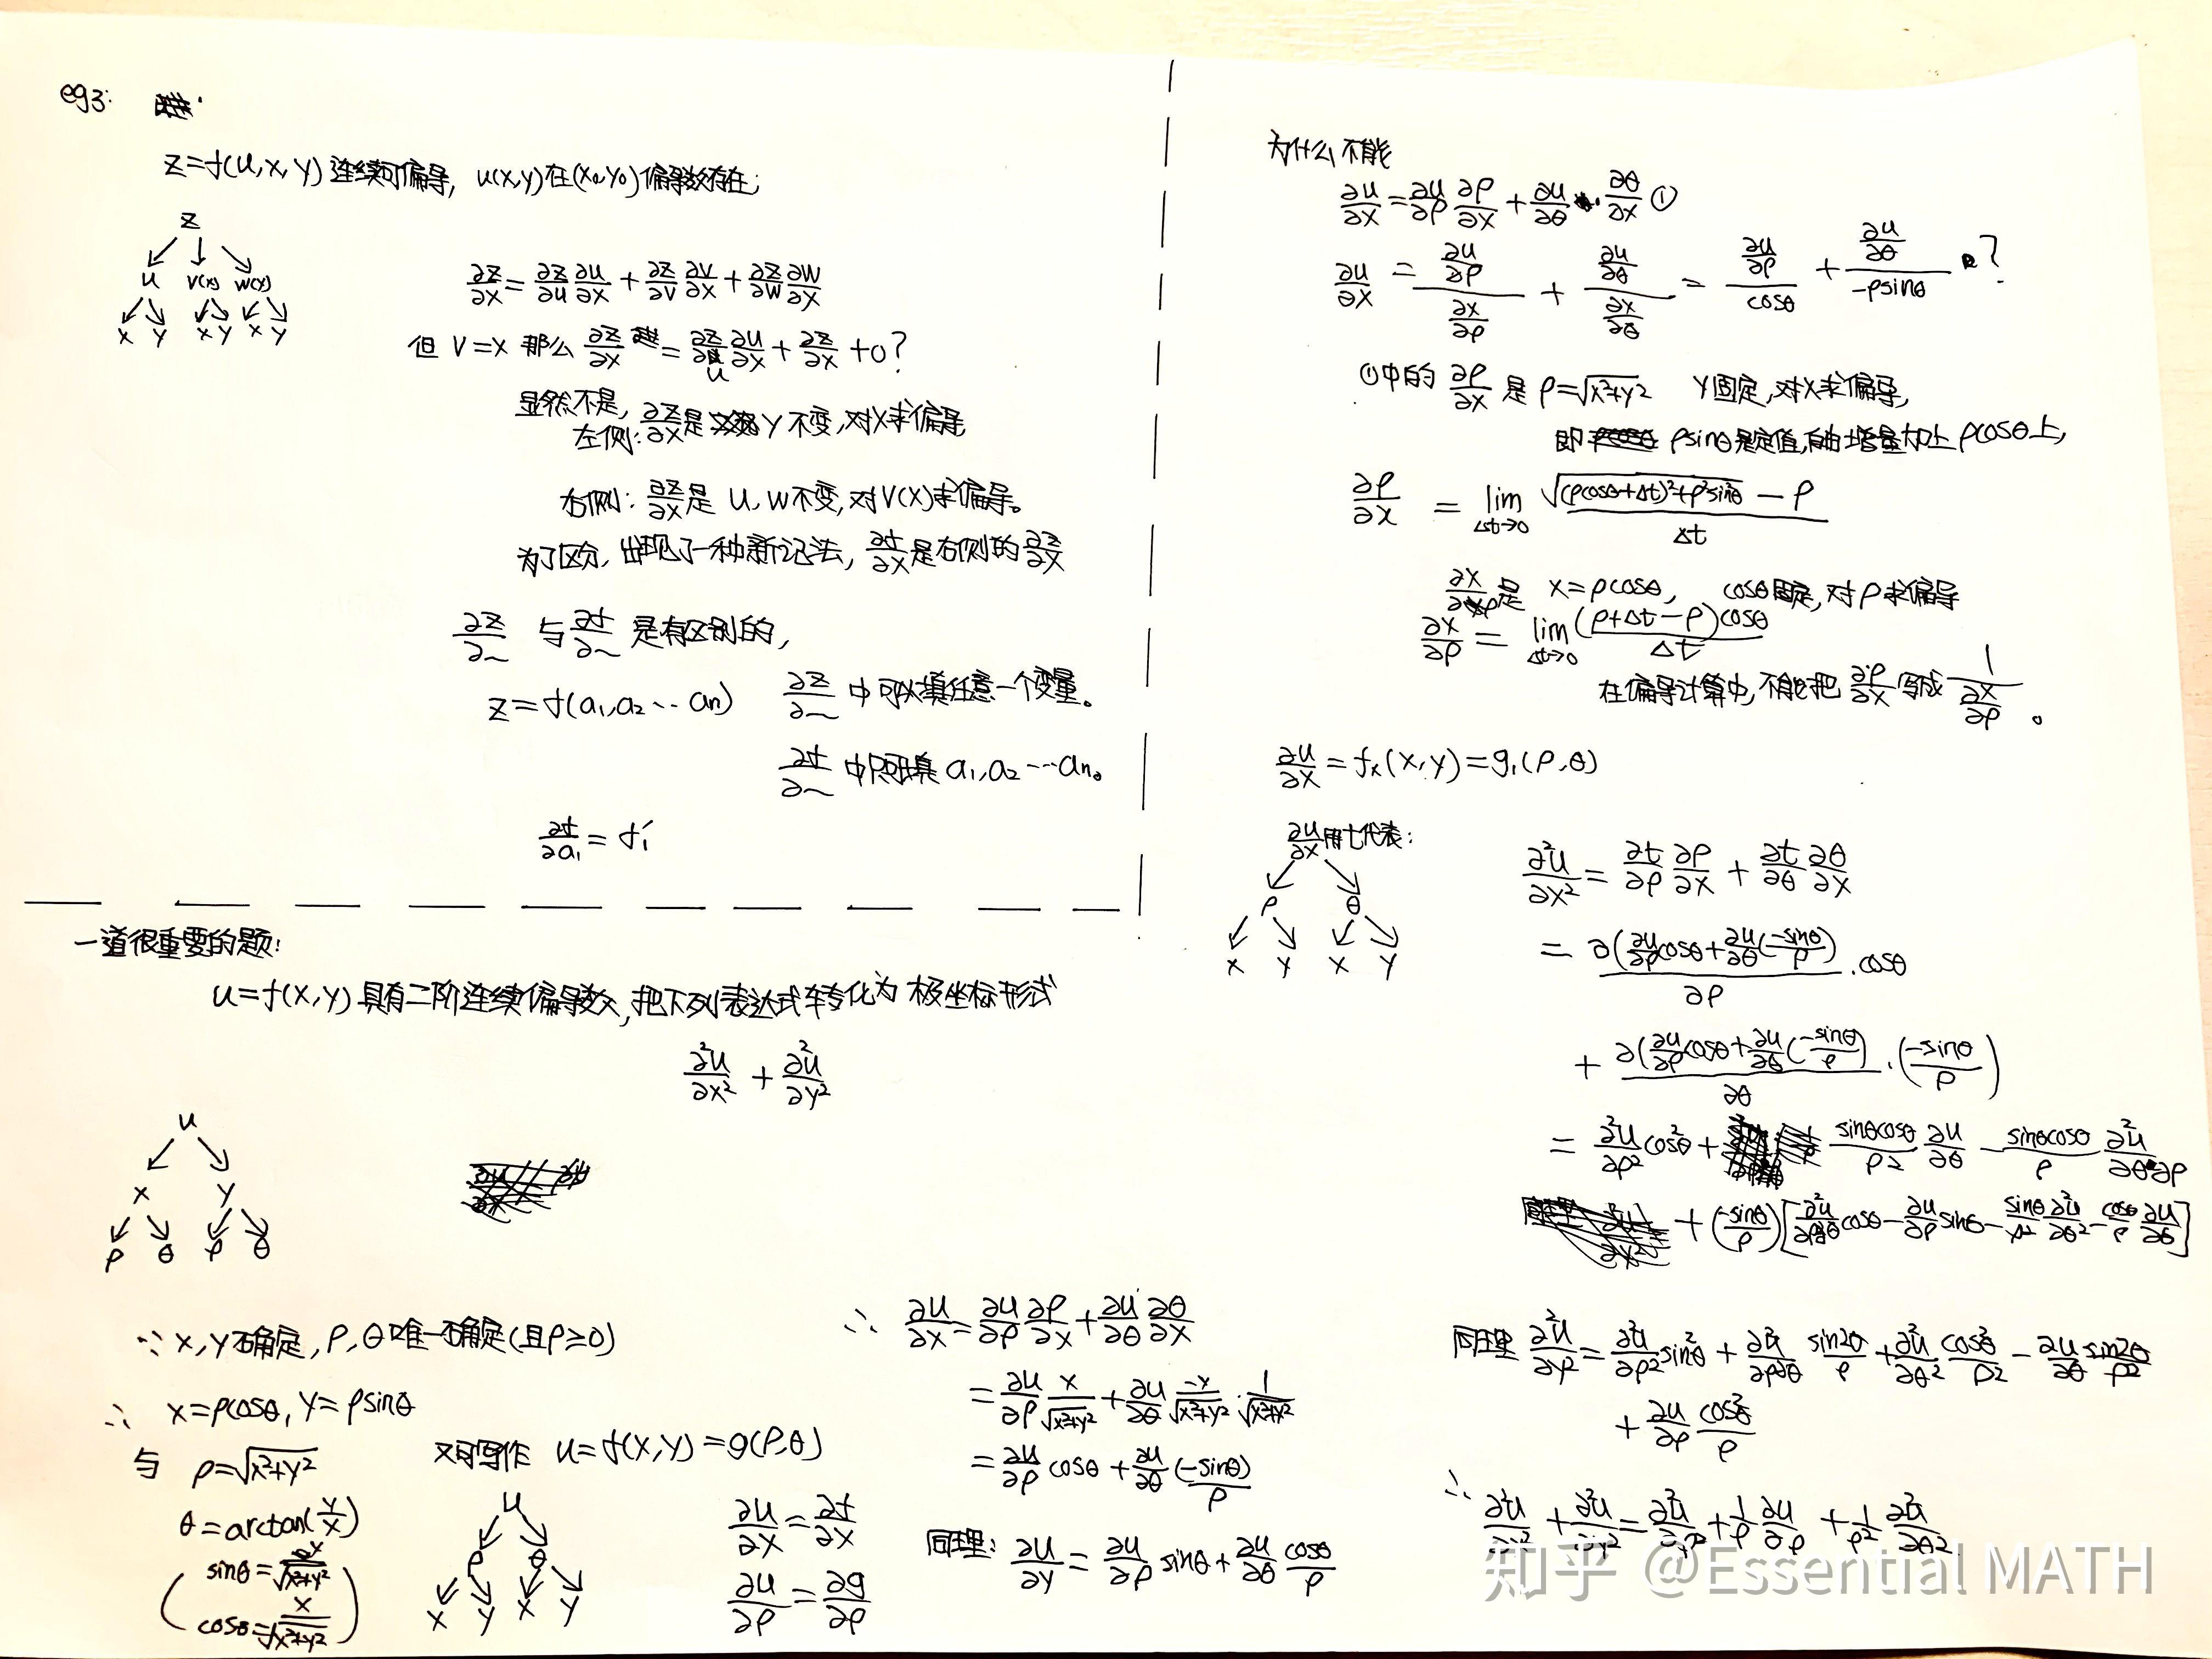 eg3:
z=f(u,x,y)连续可偏导, u(x,y)在(x₀,y₀)偏导数存在;
z
u v(x) w(x)
x y x y x y
∂z/∂x=∂z/∂u ∂u/∂x+∂z/∂v ∂v/∂x+∂z/∂w ∂w/∂x
但 v=x 那么 ∂z/∂x=∂z/∂u ∂u/∂x+∂z/∂x+0?
显然不是,
左侧:∂z/∂x是y不变,对x求偏导
右侧:∂z/∂x是 u,w不变,对v(x)求偏导。
为了区分,出现了一种新记法,∂f/∂x是右侧的∂z/∂x
∂z/∂~ 与∂f/∂~ 是有区别的,
z=f(a₁,a₂…an) ∂z/∂~ 中可以填任意一个变量。
∂f/∂~ 中只可填 a₁,a₂…an。
∂f/∂a₁=f₁′
一道很重要的题:
u=f(x,y)具有二阶连续偏导数,把下列表达式转化为 极坐标形式
∂²u/∂x²+∂²u/∂y²
u
x y
ρ θ ρ θ
∵x,y确定,ρ,θ唯一确定(且ρ≥0)
∴ x=ρcosθ,y=ρsinθ
与 ρ=√(x²+y²)
θ=arctan(y/x)
(sinθ=y/√(x²+y²)
cosθ=x/√(x²+y²))
又可写作 u=f(x,y)=g(ρ,θ)
u
ρ θ
x y x y
∂u/∂x=∂f/∂x
∂u/∂ρ=∂g/∂ρ
∴ ∂u/∂x=∂u/∂ρ ∂ρ/∂x+∂u/∂θ ∂θ/∂x
=∂u/∂ρ x/√(x²+y²)+∂u/∂θ -y/√(x²+y²)·1/√(x²+y²)
=∂u/∂ρ cosθ+∂u/∂θ (-sinθ)/ρ
同理:∂u/∂y=∂u/∂ρ sinθ+∂u/∂θ cosθ/ρ
为什么不能
∂u/∂x=∂u/∂ρ ∂ρ/∂x+∂u/∂θ·∂θ/∂x ①
∂u/∂x=(∂u/∂ρ)/(∂x/∂ρ)+(∂u/∂θ)/(∂x/∂θ)=(∂u/∂ρ)/cosθ+(∂u/∂θ)/(-ρsinθ)?
①中的 ∂ρ/∂x 是 ρ=√(x²+y²) y固定,对x求偏导,
即 ρsinθ是定值,由增量加上 ρcosθ上,
∂ρ/∂x=lim Δt→0 (√((ρcosθ+Δt)²+ρ²sin²θ)-ρ)/Δt
∂x/∂ρ是 x=ρcosθ, cosθ固定,对ρ求偏导
∂x/∂ρ=lim Δt→0 (ρ+Δt-ρ)cosθ/Δt
在偏导计算中,不能把∂ρ/∂x写成1/(∂x/∂ρ)。
∂u/∂x=fx(x,y)=g₁(ρ,θ)
∂u/∂x用t代表:
ρ θ
x y x y
∂²u/∂x²=∂t/∂ρ ∂ρ/∂x+∂t/∂θ ∂θ/∂x
=∂(∂u/∂ρ cosθ+∂u/∂θ(-sinθ/ρ))/∂ρ·cosθ
+∂(∂u/∂ρ cosθ+∂u/∂θ(-sinθ/ρ))/∂θ·(-sinθ/ρ)
=∂²u/∂ρ² cos²θ+sinθcosθ/ρ² ∂u/∂θ-sinθcosθ/ρ ∂²u/∂θ∂ρ
+(-sinθ/ρ)[∂²u/∂ρ∂θ cosθ-∂u/∂ρ sinθ-sinθ/ρ² ∂²u/∂θ²-cosθ/ρ ∂u/∂θ]
同理∂²u/∂y²=∂²u/∂ρ² sin²θ+∂²u/∂ρ∂θ sin2θ/ρ+∂²u/∂θ² cos²θ/ρ²-∂u/∂θ sin2θ/ρ²
+∂u/∂ρ cos²θ/ρ
∴ ∂²u/∂x²+∂²u/∂y²=∂²u/∂ρ²+1/ρ ∂u/∂ρ+1/ρ² ∂²u/∂θ²
知乎 @Essential MATH